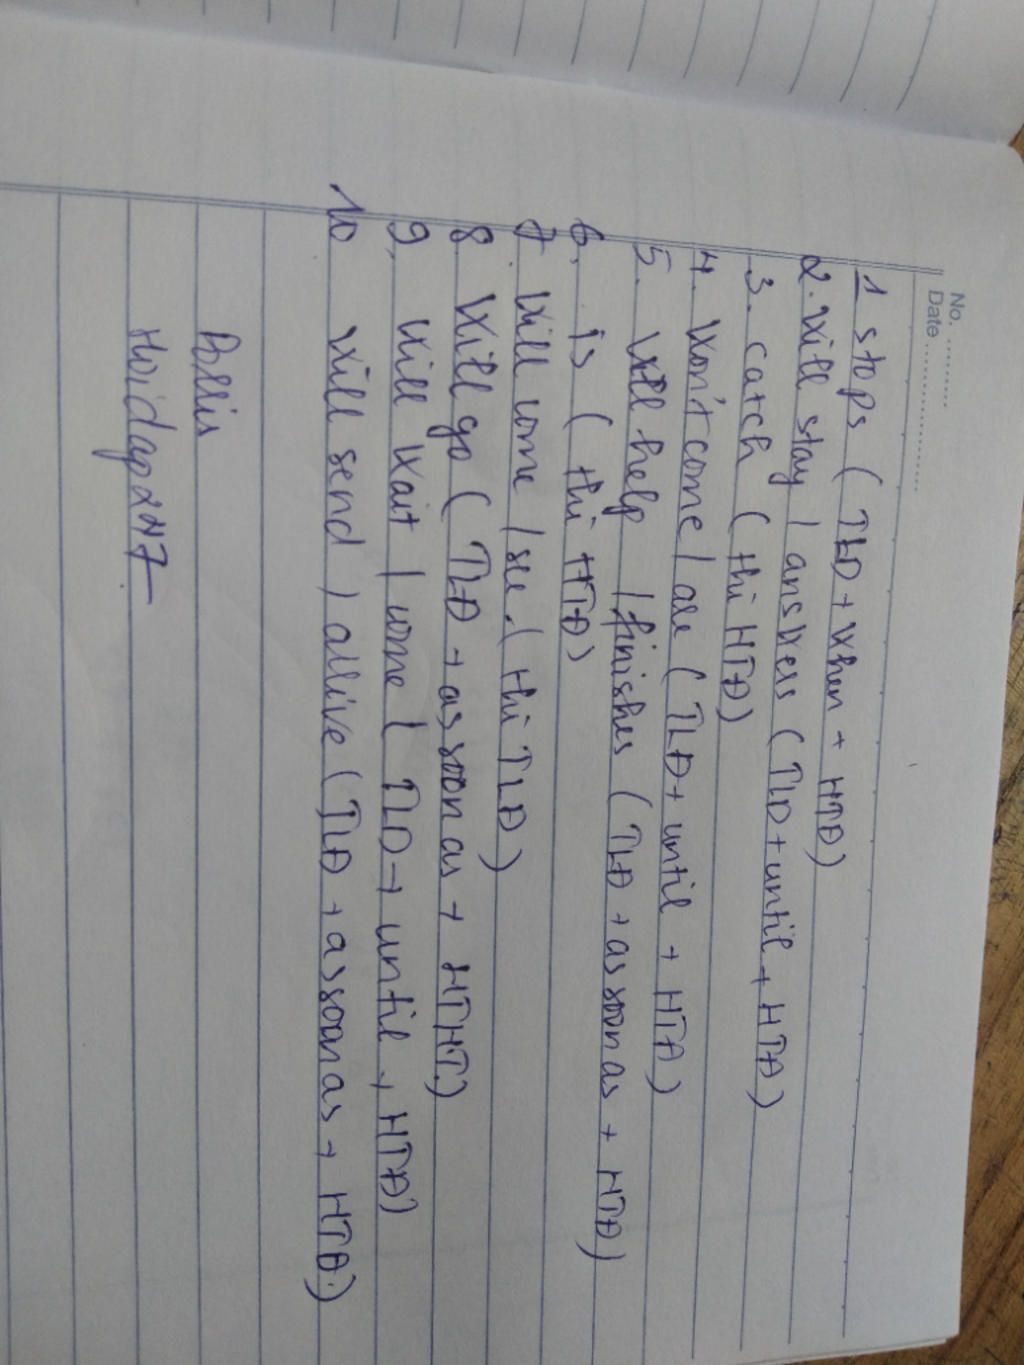 No. ............
Date ........................
1 stops ( TLĐ + When + HTĐ)
2. Will stay / answers (TLD + until + HTĐ)
3. catch ( thì HTĐ)
4. Won't come / are ( TLĐ + until + HTĐ)
5. Will help / finishes ( TLĐ + as soon as + HTĐ)
6. is ( thì HTĐ)
7. Will come / see. ( thì TLĐ)
8. Will go ( TLĐ + as soon as + HTHT)
9, Will Wait / come ( TLD + until + HTĐ)
10 Will send / arrive ( TLĐ + as soon as + HTĐ.)
Pollis
Hoidap247